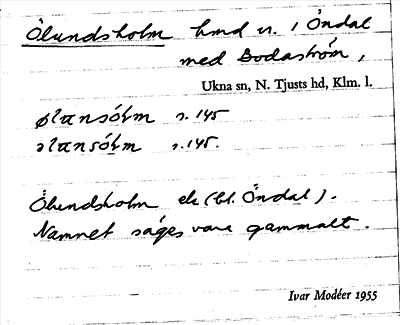 Ölundsholm hmd nr. 1 Öndal
med Bodaström,
Ukna sn, N. Tjusts hd, Klm. l.
s. 145
s. 145.
Ölundsholm (bl. Öndal).
Namnet säges vara gammalt.
Ivar Modéer 1955